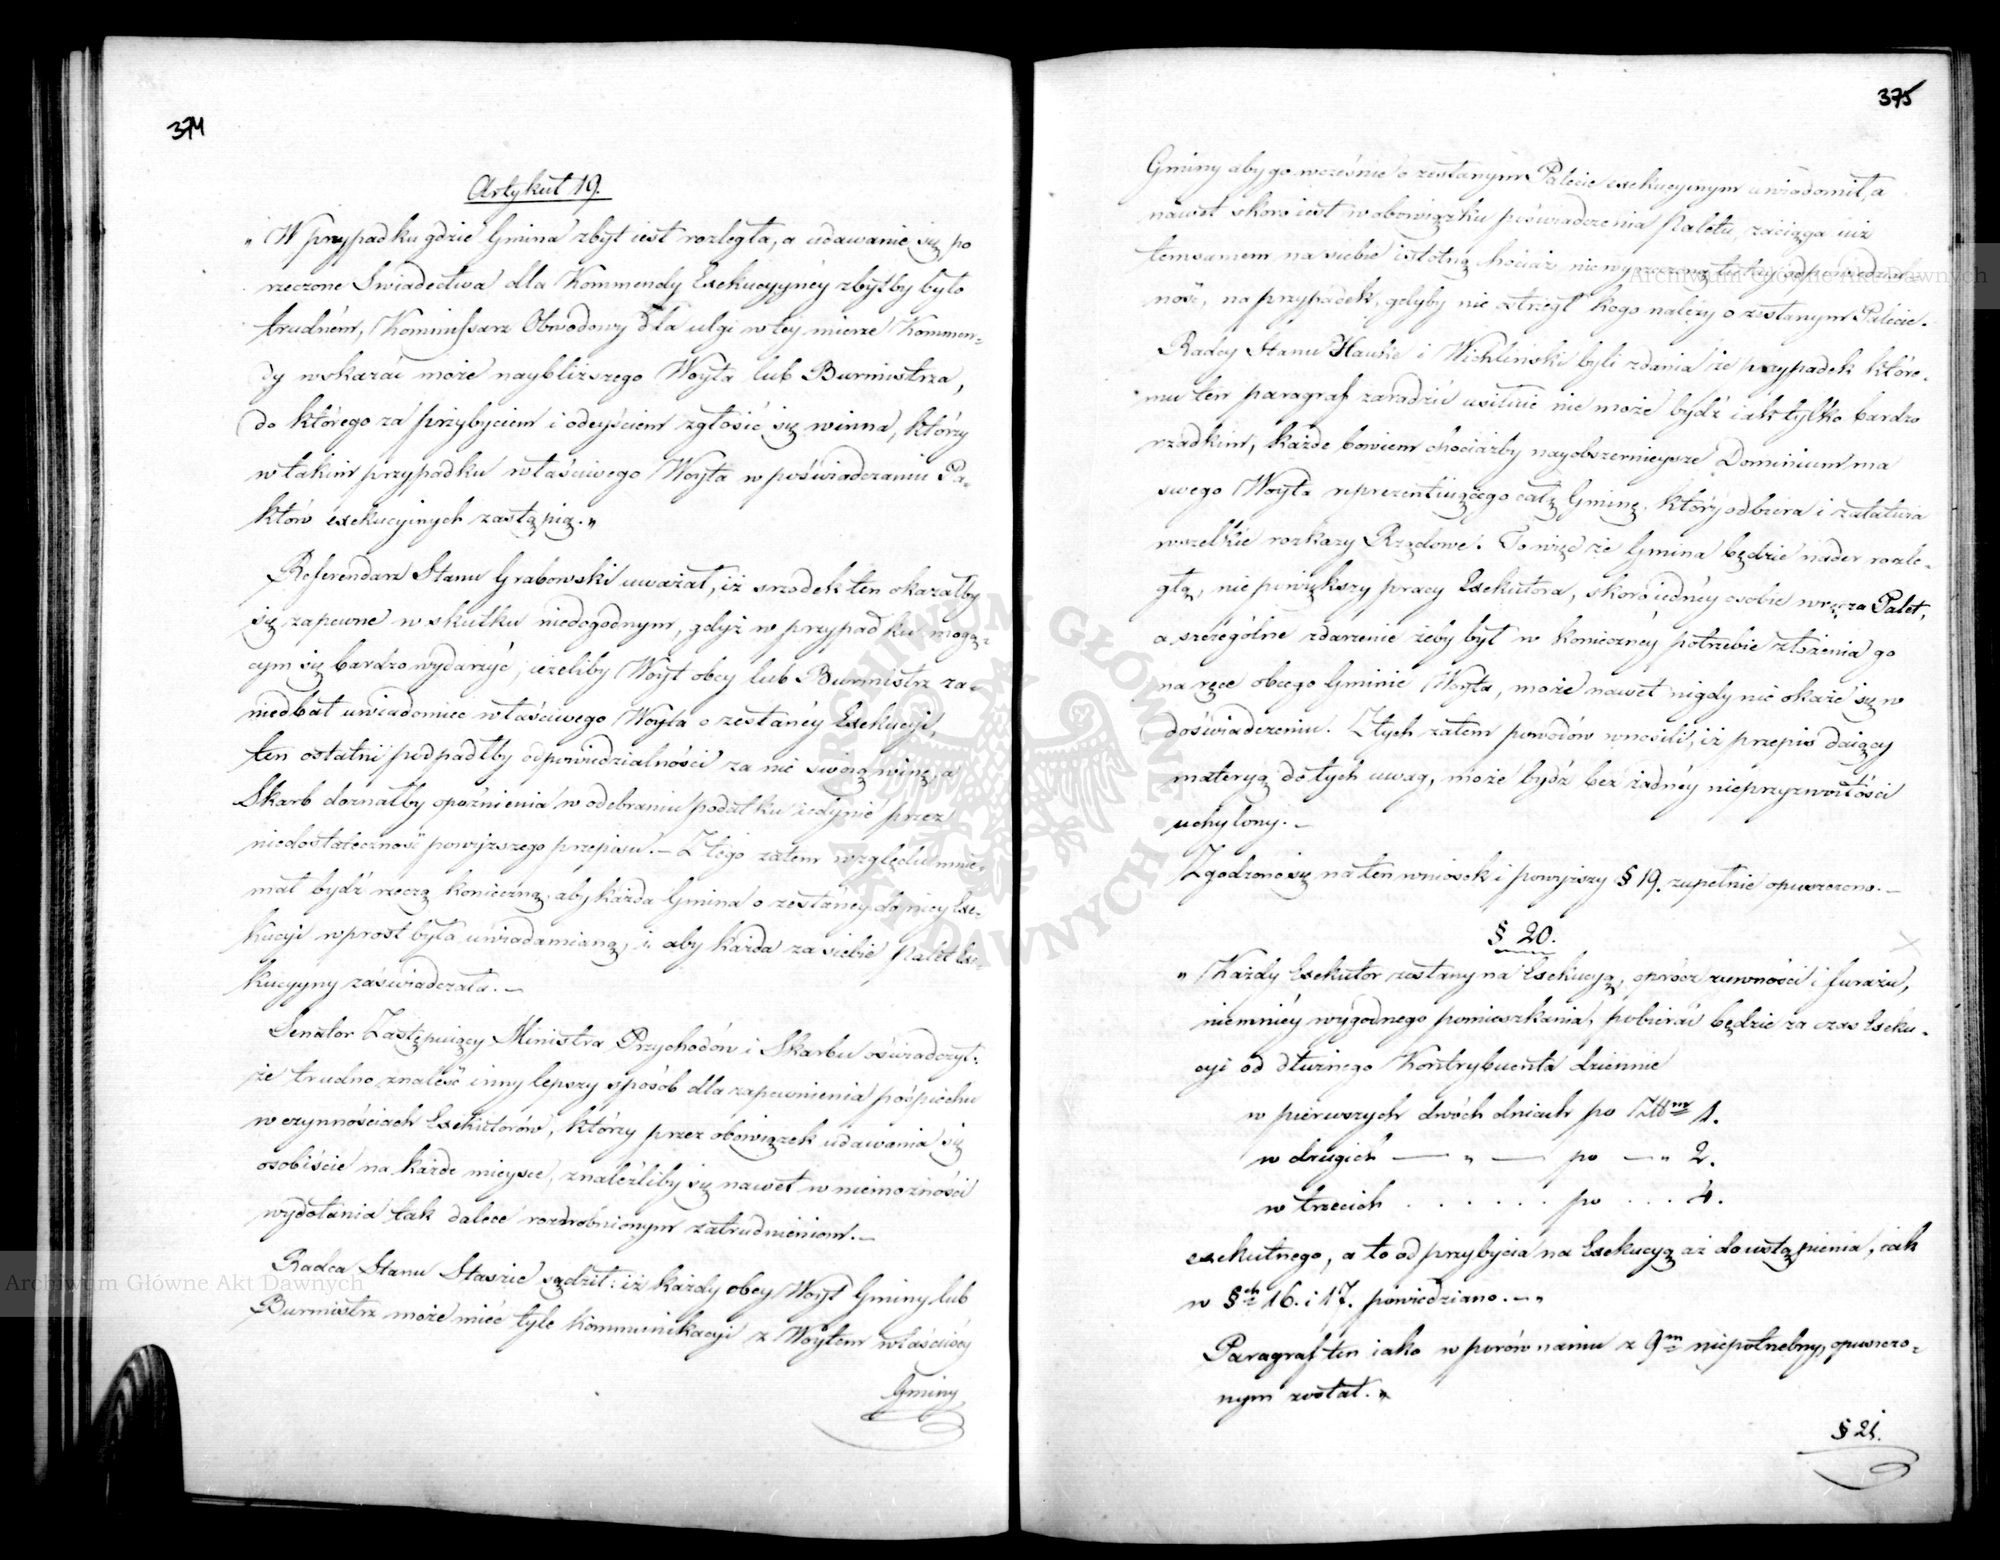 374
Artykuł 19.
„ W przypadku gdzie Gmina zbyt iest rozległa, a udawanie się po
rzeczone Świadectwa dla Kommendy Exekucyyney zbytby było
trudném, Kommissarz Obwodowy dla ulgi w téj mierze Kommen-
dy wskazać może naybliższego Woyta lub Burmistrza,
do którego za przybyciem i odeyściem zgłosić się winna, którzy
w takim przypadku właściwego Woyta w poświadczaniu Pa-
któw exekucyinych zastąpią. „
Referendarz Stanu Grabowski uważał, iż srzodek ten okazałby
się zapewne w skutku niedogodnym, gdyż w przypadku mogą-
cym się bardzo wydarzyć, ieżeliby Woyt obcy lub Burmistrz za-
niedbał uwiadomić właściwego Woyta o zesłanéy Exekucyi,
ten ostatni podpadłby odpowiedzialności za nie swoią winę, a
Skarb doznałby opóźnienia w odebraniu podatku iedynie przez
niedostateczność powyższego przepisu. – Z tego zatem względu mnie-
mał bydź rzeczą konieczną, aby każda Gmina o zesłanéy do niey Exe-
kucyi wprost była uwiadamianą, i aby każda za siebie Palet Exe-
kucyyny zaświadczała. –
Senator Zastępuiący Ministra Przychodów i Skarbu oświadczył:
że trudno znaleść inny lepszy sposób dla zapewnienia pośpiechu
w czynnościach Exekutorów, którzy przez obowiązek udawania się
osobiście na każde mieysce, znaleźliby się nawet w niemożności
wydołania tak dalece rozdrobnionym zatrudnieniom. –
Radca Stanu Staszic sądził: iż każdy obcy Woyt Gminy lub
Burmistrz może mieć tyle kommunikacyi z Woytem właściwéy
Gminy
375
Gminy aby go wcześnie o zesłanym Palecie exekucyinym uwiadomił, a
nawet skoro iest w obowiązku poświadczenia Paletu, zaciąga iuż
temsamem na siebie istotną chociaż niewyrzeczoną tutay odpowiedzial-
ność, na przypadek, gdyby nie ostrzegł kogo należy o zesłanym Palecie.
Radcy Stanu Hauke i Wichliński byli zdania że przypadek które-
mu ten paragraf zaradzić usiłuie nie może bydź iak tylko bardzo
rzadkim, każde bowiem chociażby nayobszernieysze Dominium ma
swego Woyta reprezentuiącego całą Gminę, który odbiera i załatwia
wszelkie rozkazy Rządowe. To więc że Gmina będzie nader rozle-
głą, nie powiększy pracy Exekutora, skoro iednéy osobie wręcza Palet,
a szczególne zdarzenie żeby był w konieczney potrzebie złożenia go
na ręce obcego Gminie Woyta, może nawet nigdy nie okaże się w
doświadczeniu. Z tych zatem powodów wnosili, iż przepis daiący
materyą do tych uwag, może bydź bez żadnéy nieprzyzwoitości
uchylony. –
Zgodzono się na ten wniosek i powyższy § 19. zupełnie opuszczono. –
§ 20.
„ Każdy Exekutor zesłany na Exekucyą, oprócz żywności i furażu,
niemniéy wygodnego pomieszkania, pobierać będzie za czas Exeku-
cyi od dłużnego Kontrybuenta dziennie
w pierwszych dwóch dniach po Złtm 1.
w drugich — „ — po — „ 2.
w trzecich . . . . . . po . . . 4.
exekutnego, a to od przybycia na Exekucyą aż do ustąpienia, iak
w §ch 16. i 17. powiedziano. – „
Paragraf ten iako w porównaniu z 9m niepotrzebny, opuszczo-
nym został. „
§ 21.
Archiwum Główne Akt Dawnych
Archiwum Główne Akt Dawnych
ARCHIWUM GŁÓWNE AKT DAWNYCH